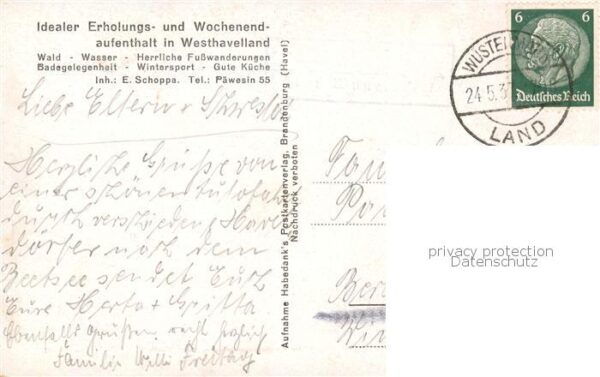 Idealer Erholungs- und Wochenend-
aufenthalt in Westhavelland
Wald - Wasser - Herrliche Fußwanderungen
Badegelegenheit - Wintersport - Gute Küche
Inh.: E. Schoppa. Tel.: Päwesin 55
Liebe Eltern u.
Herzliche Grüße von
einer schönen Autofahrt
durch verschiedene
dörfer nach dem
Beetzsee sendet Euch
Eure Herta + Gritta
Ebenfalls grüßen recht herzlich
Familie Willi Freitag
Aufnahme Habedank's Postkartenverlag, Brandenburg (Havel)
Nachdruck verboten
6 6
Deutsches Reich
24.5.3
LAND
privacy protection
Datenschutz